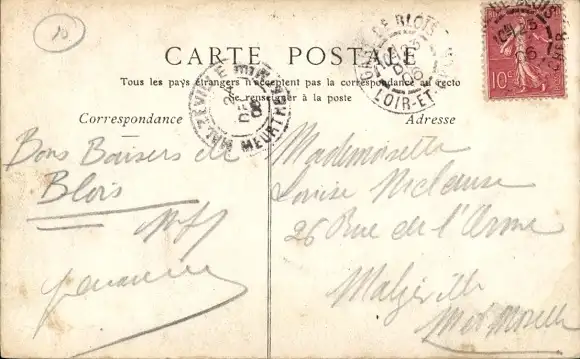 CARTE POSTALE
Tous les pays étrangers n'acceptent pas la correspondance au recto
Se renseigner à la poste
Correspondance
Adresse
Bons Baisers de
Blois
Mademoiselle
Louise
26 Rue de l'
Malzéville
Mthe Moselle
MALZÉVILLE
MEURTHE
GARE DE BLOIS
LOIR-ET-CHER
10c